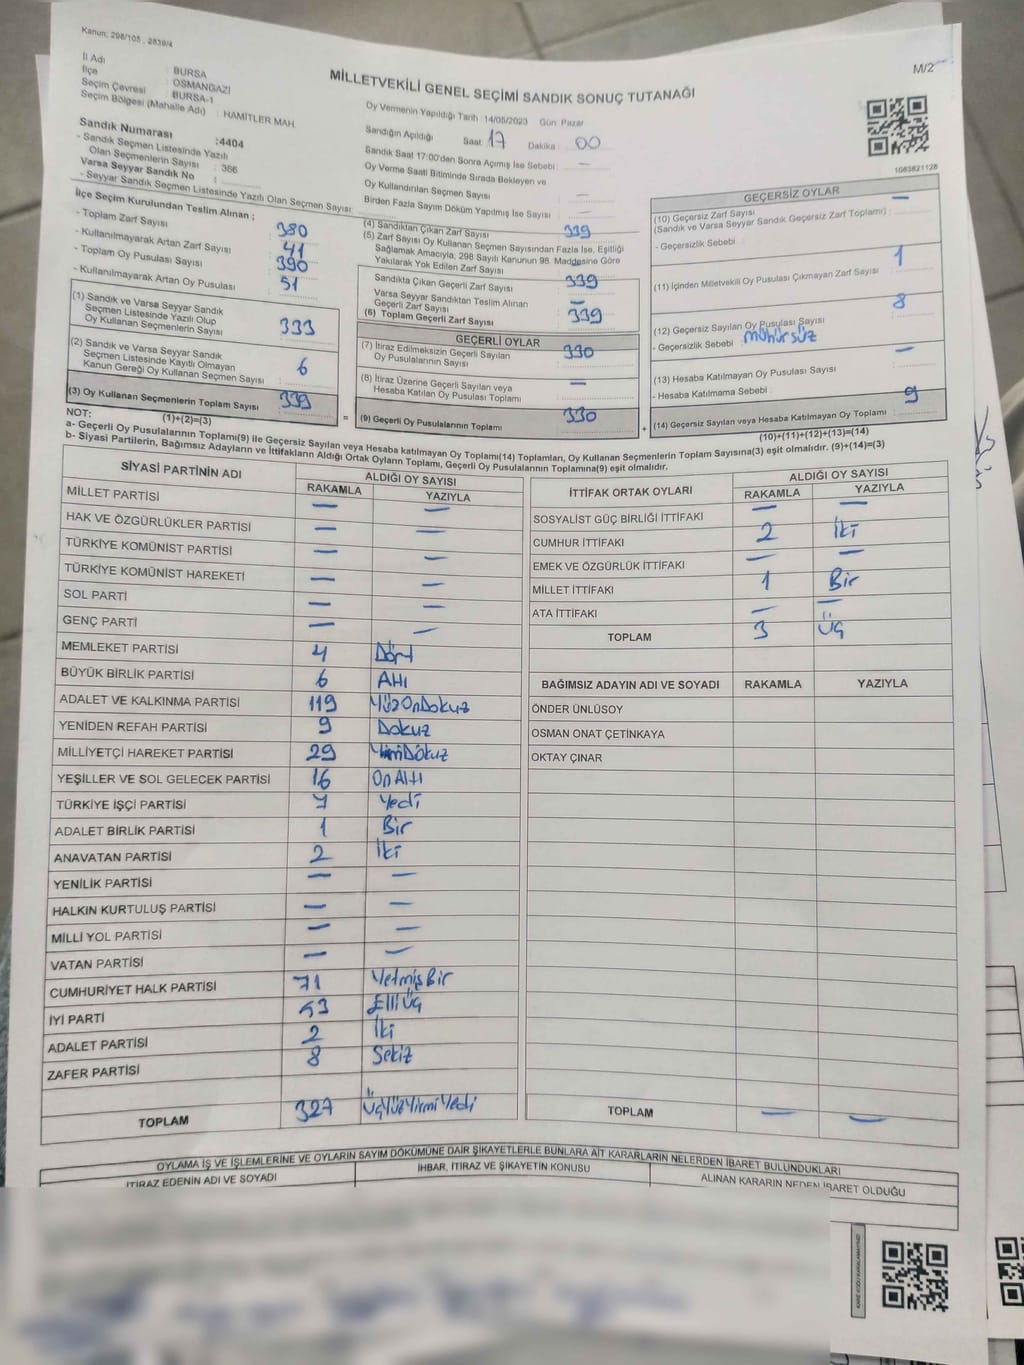 Kanun: 298/105 . 2839/4
M/2
MİLLETVEKİLİ GENEL SEÇİMİ SANDIK SONUÇ TUTANAĞI
İl Adı : BURSA
İlçe : OSMANGAZİ
Seçim Çevresi : BURSA-1
Seçim Bölgesi (Mahalle Adı) : HAMİTLER MAH.
Sandık Numarası :4404
- Sandık Seçmen Listesinde Yazılı
Olan Seçmenlerin Sayısı : 366
Varsa Seyyar Sandık No :
- Seyyar Sandık Seçmen Listesinde Yazılı Olan Seçmen Sayısı:
Oy Vermenin Yapıldığı Tarih 14/05/2023 Gün Pazar
Sandığın Açıldığı Saat 17 Dakika : 00
Sandık Saat 17:00'den Sonra Açılmış İse Sebebi : —
Oy Verme Saati Bitiminde Sırada Bekleyen ve
Oy Kullandırılan Seçmen Sayısı : —
Birden Fazla Sayım Döküm Yapılmış İse Sayısı : —
1083821128
İlçe Seçim Kurulundan Teslim Alınan ;
- Toplam Zarf Sayısı : 380
- Kullanılmayarak Artan Zarf Sayısı : 41
- Toplam Oy Pusulası Sayısı : 390
- Kullanılmayarak Artan Oy Pusulası : 51
(1) Sandık ve Varsa Seyyar Sandık
Seçmen Listesinde Yazılı Olup
Oy Kullanan Seçmenlerin Sayısı : 333
(2) Sandık ve Varsa Seyyar Sandık
Seçmen Listesinde Kayıtlı Olmayan
Kanun Gereği Oy Kullanan Seçmen Sayısı : 6
(3) Oy Kullanan Seçmenlerin Toplam Sayısı : 339
(1)+(2)=(3)
(4) Sandıktan Çıkan Zarf Sayısı : 339
(5) Zarf Sayısı Oy Kullanan Seçmen Sayısından Fazla İse, Eşitliği
Sağlamak Amacıyla, 298 Sayılı Kanunun 98. Maddesine Göre
Yakılarak Yok Edilen Zarf Sayısı :
Sandıkta Çıkan Geçerli Zarf Sayısı : 339
Varsa Seyyar Sandıktan Teslim Alınan
Geçerli Zarf Sayısı : —
(6) Toplam Geçerli Zarf Sayısı : 339
GEÇERLİ OYLAR
(7) İtiraz Edilmeksizin Geçerli Sayılan
Oy Pusulalarının Sayısı : 330
(8) İtiraz Üzerine Geçerli Sayılan veya
Hesaba Katılan Oy Pusulası Toplamı : —
= (9) Geçerli Oy Pusulalarının Toplamı : 330 +
GEÇERSİZ OYLAR
(10) Geçersiz Zarf Sayısı —
(Sandık ve Varsa Seyyar Sandık Geçersiz Zarf Toplamı) :
- Geçersizlik Sebebi :
(11) İçinden Milletvekili Oy Pusulası Çıkmayan Zarf Sayısı : 1
(12) Geçersiz Sayılan Oy Pusulası Sayısı : 8
- Geçersizlik Sebebi : mühürsüz
(13) Hesaba Katılmayan Oy Pusulası Sayısı : —
- Hesaba Katılmama Sebebi :
(14) Geçersiz Sayılan veya Hesaba Katılmayan Oy Toplamı : 9
(10)+(11)+(12)+(13)=(14)
NOT:
a- Geçerli Oy Pusulalarının Toplamı(9) ile Geçersiz Sayılan veya Hesaba katılmayan Oy Toplamı(14) Toplamları, Oy Kullanan Seçmenlerin Toplam Sayısına(3) eşit olmalıdır. (9)+(14)=(3)
b- Siyasi Partilerin, Bağımsız Adayların ve İttifakların Aldığı Ortak Oyların Toplamı, Geçerli Oy Pusulalarının Toplamına(9) eşit olmalıdır.
SİYASİ PARTİNİN ADI ALDIĞI OY SAYISI
RAKAMLA YAZIYLA
MİLLET PARTİSİ — —
HAK VE ÖZGÜRLÜKLER PARTİSİ — —
TÜRKİYE KOMÜNİST PARTİSİ — —
TÜRKİYE KOMÜNİST HAREKETİ — —
SOL PARTİ — —
GENÇ PARTİ — —
MEMLEKET PARTİSİ 4 Dört
BÜYÜK BİRLİK PARTİSİ 6 Altı
ADALET VE KALKINMA PARTİSİ 119 YüzOnDokuz
YENİDEN REFAH PARTİSİ 9 Dokuz
MİLLİYETÇİ HAREKET PARTİSİ 29 YirmiDokuz
YEŞİLLER VE SOL GELECEK PARTİSİ 16 OnAltı
TÜRKİYE İŞÇİ PARTİSİ 7 Yedi
ADALET BİRLİK PARTİSİ 1 Bir
ANAVATAN PARTİSİ 2 İki
YENİLİK PARTİSİ — —
HALKIN KURTULUŞ PARTİSİ — —
MİLLİ YOL PARTİSİ — —
VATAN PARTİSİ — —
CUMHURİYET HALK PARTİSİ 71 YetmişBir
İYİ PARTİ 53 ElliÜç
ADALET PARTİSİ 2 İki
ZAFER PARTİSİ 8 Sekiz
TOPLAM 327 ÜçYüzYirmiYedi
İTTİFAK ORTAK OYLARI ALDIĞI OY SAYISI
RAKAMLA YAZIYLA
SOSYALİST GÜÇ BİRLİĞİ İTTİFAKI — —
CUMHUR İTTİFAKI 2 İki
EMEK VE ÖZGÜRLÜK İTTİFAKI — —
MİLLET İTTİFAKI 1 Bir
ATA İTTİFAKI — —
TOPLAM 3 Üç
BAĞIMSIZ ADAYIN ADI VE SOYADI RAKAMLA YAZIYLA
ÖNDER ÜNLÜSOY
OSMAN ONAT ÇETİNKAYA
OKTAY ÇINAR
TOPLAM — —
OYLAMA İŞ VE İŞLEMLERİNE VE OYLARIN SAYIM DÖKÜMÜNE DAİR ŞİKAYETLERLE BUNLARA AİT KARARLARIN NELERDEN İBARET BULUNDUKLARI
İTİRAZ EDENİN ADI VE SOYADI İHBAR, İTİRAZ VE ŞİKAYETİN KONUSU ALINAN KARARIN NEDEN İBARET OLDUĞU